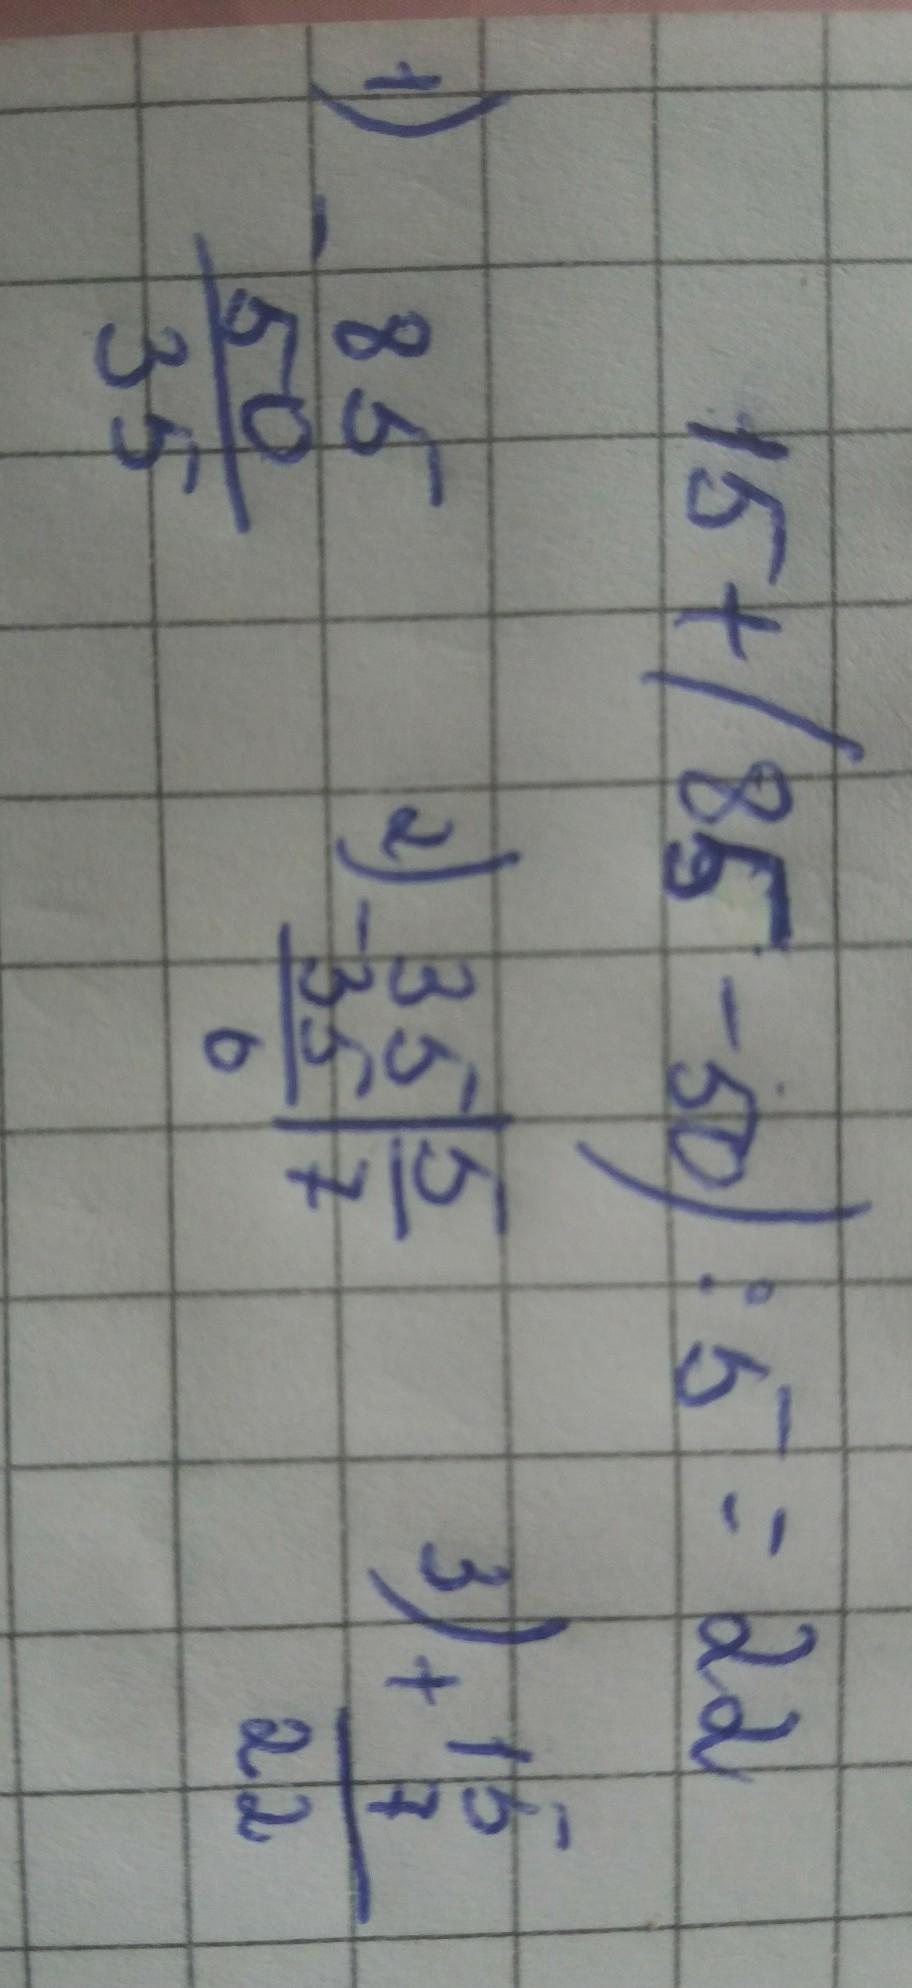 15+(85-50):5=22
1) 2) 3)
- 85
50
35
- 35 | 5
35 | 7
0
+ 15
7
22